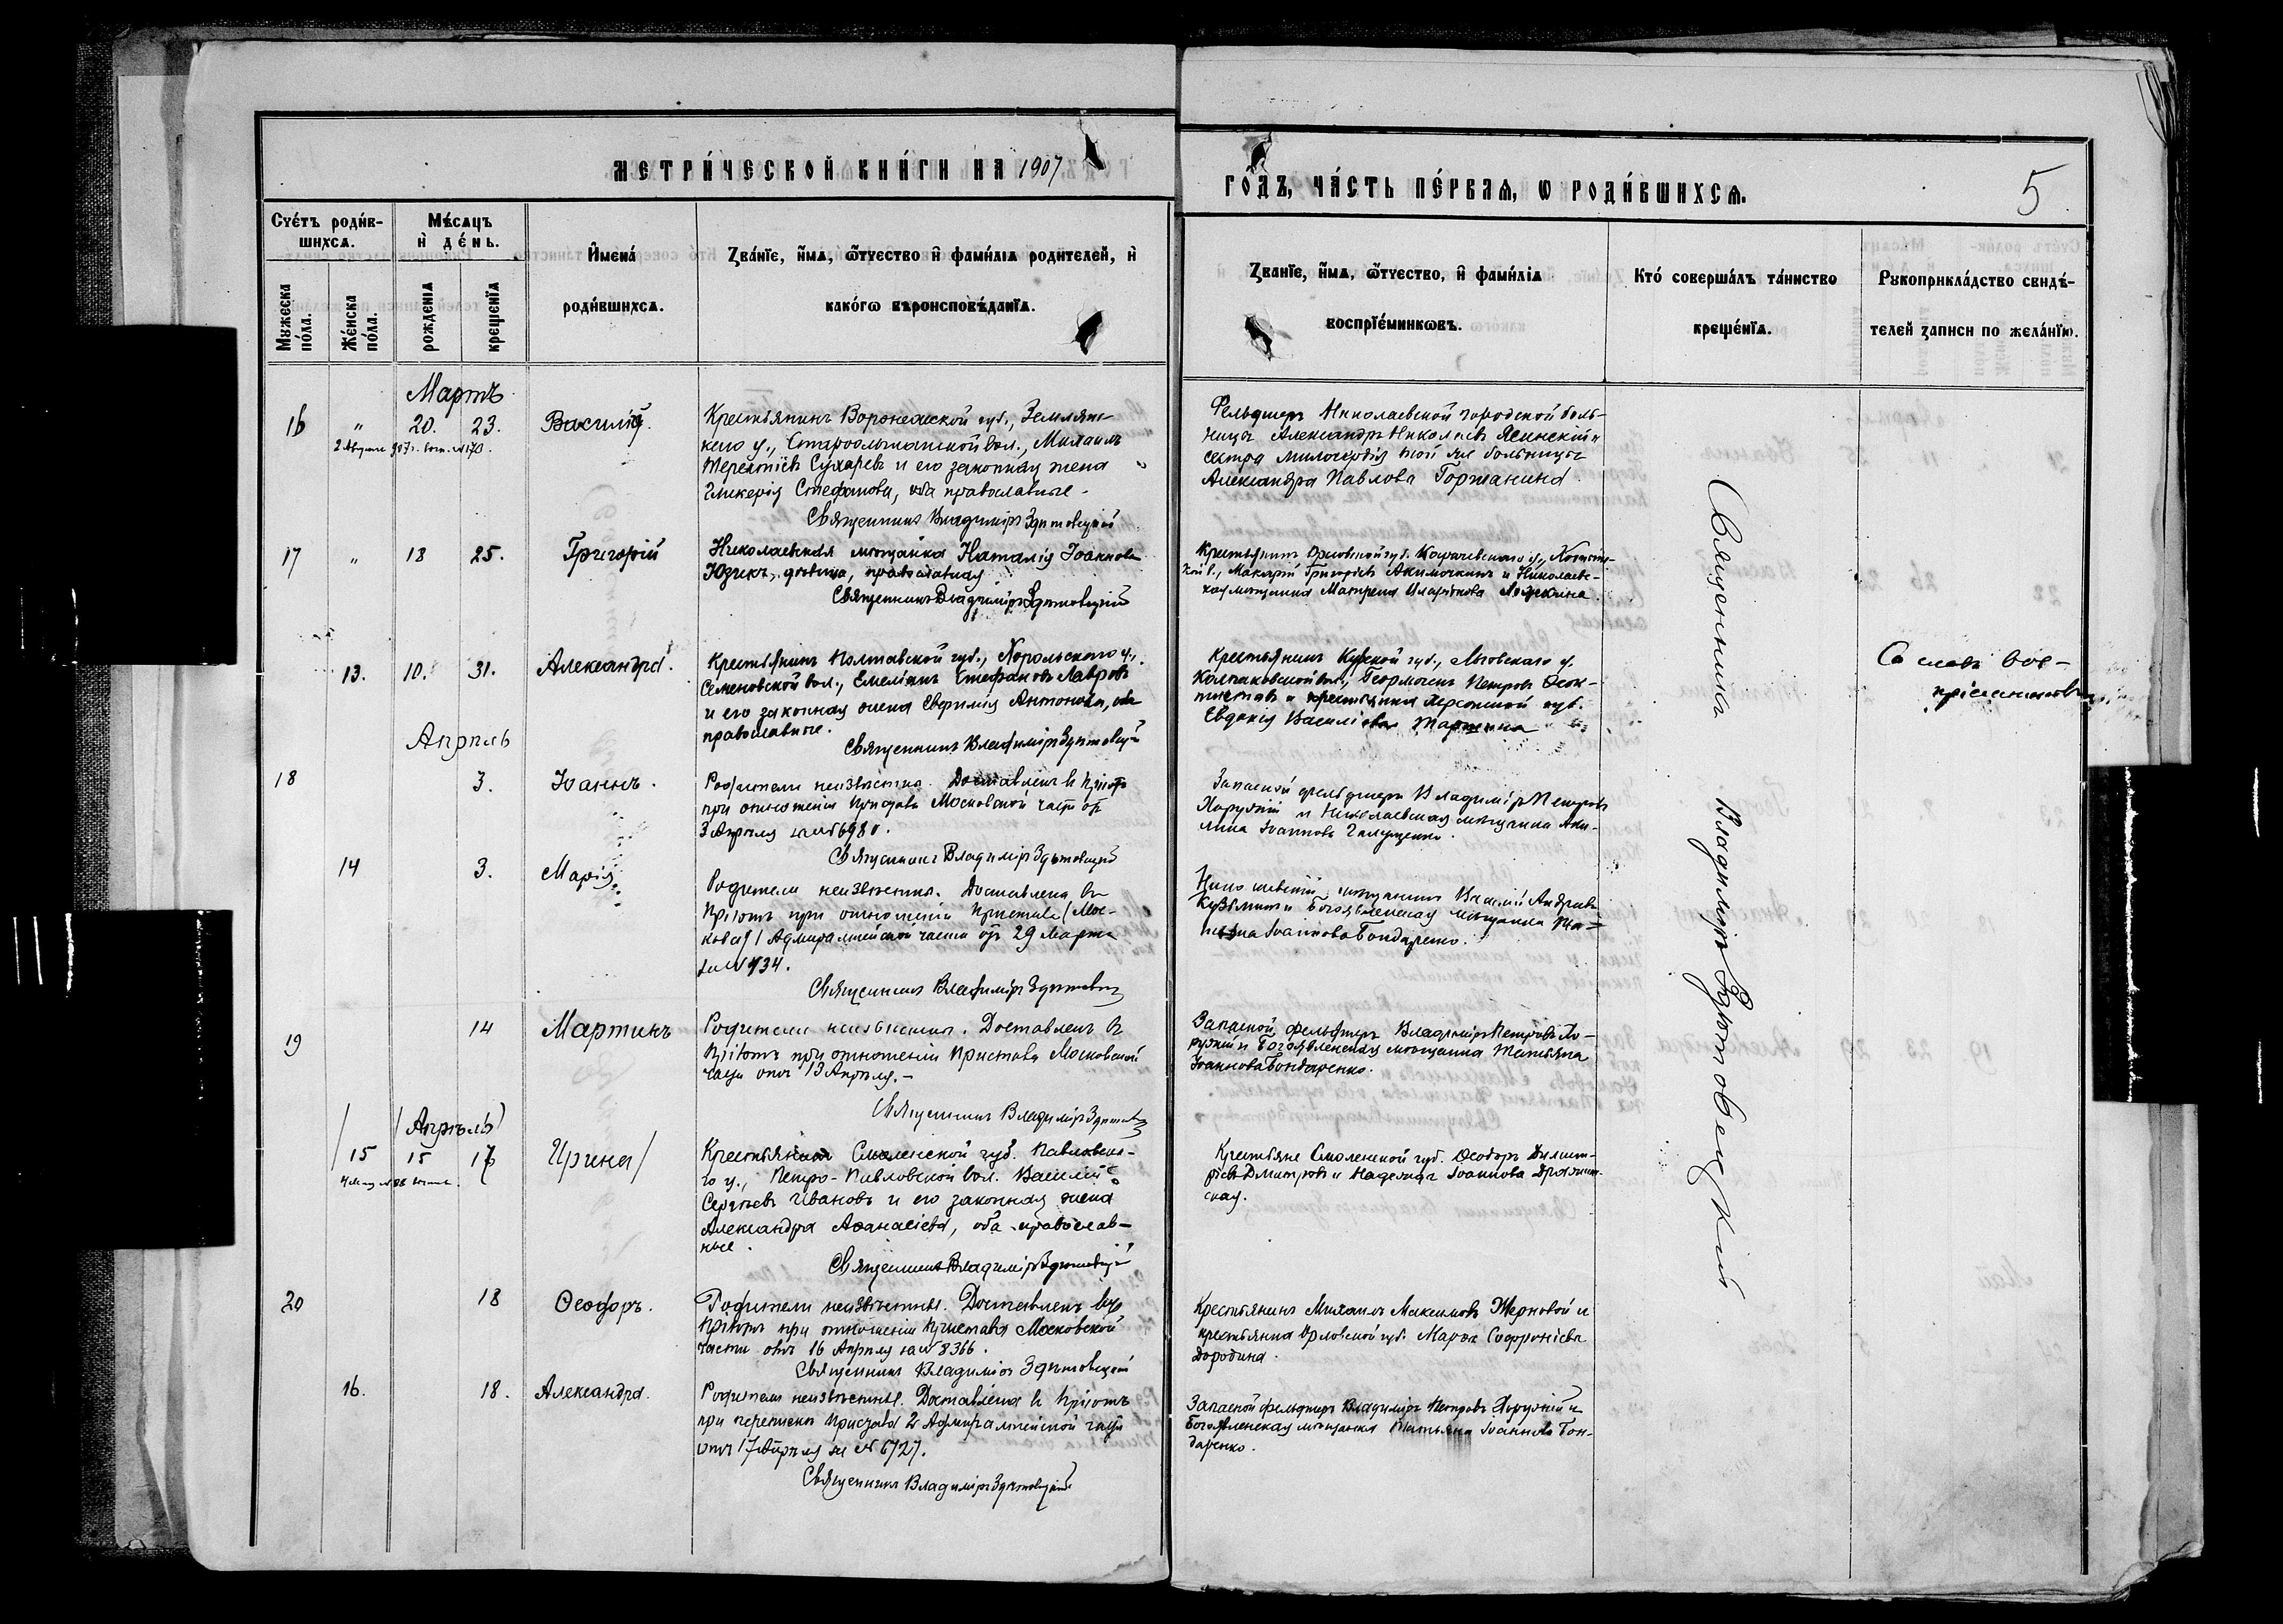 МЕТРИ́ЧЕСКОЙ КНИ́ГИ НА 1907
ГО́ДЪ, ЧА́СТЬ ПЕ́РВАѦ, Ѡ РОДИ́ВШИХСѦ.
5
Сче́тъ роди́в-
шихсѧ.
Мѣ́сѧцъ
и де́нь.
Мꙋжеска по́ла.
Же́нска по́ла.
рожденїѧ
крещенїѧ
Имена́
роди́вшихсѧ.
Зва́нїе, и́мѧ, ѿчество и фами́лїѧ родителей, и
како́гѡ вѣроисповѣ́данїѧ.
Званїе, и́мѧ, ѿчество, и фами́лїѧ
воспрїе́мникѡвъ.
Кто́ соверша́лъ та́инство
креще́нїѧ.
Рꙋкоприкла́дство свидѣ́-
телей записи по жела́нїю.
Мартъ
16 " 20. 23. Василій.
Крестьянинъ Воронежской губ., Землянс-
каго у., Староольшанской вол., Михаилъ
Терентіевъ Сухаревъ и его законная жена
Гликерія Стефанова, оба православные.
Священникъ Владиміръ Здитовецкій
Фельдшеръ Николаевской городской боль-
ницы Александръ Николаевъ Ясинскій и
сестра милосердія той же больницы
Александра Павлова Горжанина
17 " 18 25. Григорій
Николаевская мѣщанка Наталія Іоаннова
Юзикъ, дѣвица, православная
Священникъ Владиміръ Здитовецкій
Крестьянинъ Орловской губ. Карачевскаго у.,
Макарій Григорьевъ Акимочкинъ и Николаевс-
кая мѣщанка Матрена
13. 10. 31. Александра.
Крестьянинъ Полтавской губ., Хорольскаго у.,
Семеновской вол., Емеліанъ Стефановъ Лавровъ
и его законная жена Антонова, оба
православные.
Священникъ Владиміръ Здитовецкій
Крестьянинъ Курской губ., Льговскаго у.
Петровъ
и крестьянка Херсонской губ.
Евдокія Василіева
Со словъ вос-
пріемниковъ
Апрѣль
18 3. Іоаннъ.
Родители неизвѣстны. Доставленъ въ Пріютъ
при отношеніи Пристава Московской части отъ
3 Апрѣля за № 6980.
Священникъ Владиміръ Здитовецкій
Запасной фельдшеръ Владиміръ Петровъ
Хоружій и Николаевская мѣщанка Аки-
лина Іоаннова Галущенко.
14 3. Марія
Родители неизвѣстны. Доставлена въ
Пріютъ при отношеніи Пристава (Мос-
ковс) 1 Адмиралтейской части отъ 29 Марта
за № 434.
Священникъ Владиміръ Здитовецкій
Николаевскій мѣщанинъ Василій Андреевъ
Кузьминъ и Богоявленская мѣщанка Та-
тіяна Іоаннова Бондаренко.
19 14 Мартинъ
Родители неизвѣстны. Доставленъ въ
Пріютъ при отношеніи Пристава Московской
части отъ 13 Апрѣля. -
Священникъ Владиміръ Здитовецкій
Запасной фельдшеръ Владиміръ Петровъ Хо-
ружій и Богоявленская мѣщанка Татьяна
Іоаннова Бондаренко.
(Апрѣль)
15 15 17 Ирина
Крестьянинъ Смоленской губ.
го у., Петро-Павловской вол. Василій
Сергѣевъ Ивановъ и его законная жена
Александра Аѳанасіева, оба православ-
ные.
Священникъ Владиміръ Здитовецкій
Крестьяне Смоленской губ. Ѳеодоръ
Дмитровъ и Надежда Іоаннова
ская.
20 18 Ѳеодоръ.
Родители неизвѣстны. Доставленъ въ
Пріютъ при отношеніи Пристава Московской
части отъ 16 Апрѣля за № 8366.
Священникъ Владиміръ Здитовецкій
Крестьянинъ Михаилъ Максимовъ Жерновой и
крестьянка Орловской губ. Марѳа Софроніева
Дородина.
16. 18. Александра.
Родители неизвѣстны. Доставлена въ Пріютъ
при перепискѣ Пристава 2 Адмиралтейской части
отъ 17 Апрѣля за № 6727.
Священникъ Владиміръ Здитовецкій
Запасной фельдшеръ Владиміръ Петровъ Хоружій и
Богоявленская мѣщанка Татьяна Іоаннова Бон-
даренко.
Священникъ Владиміръ Здитовецкій